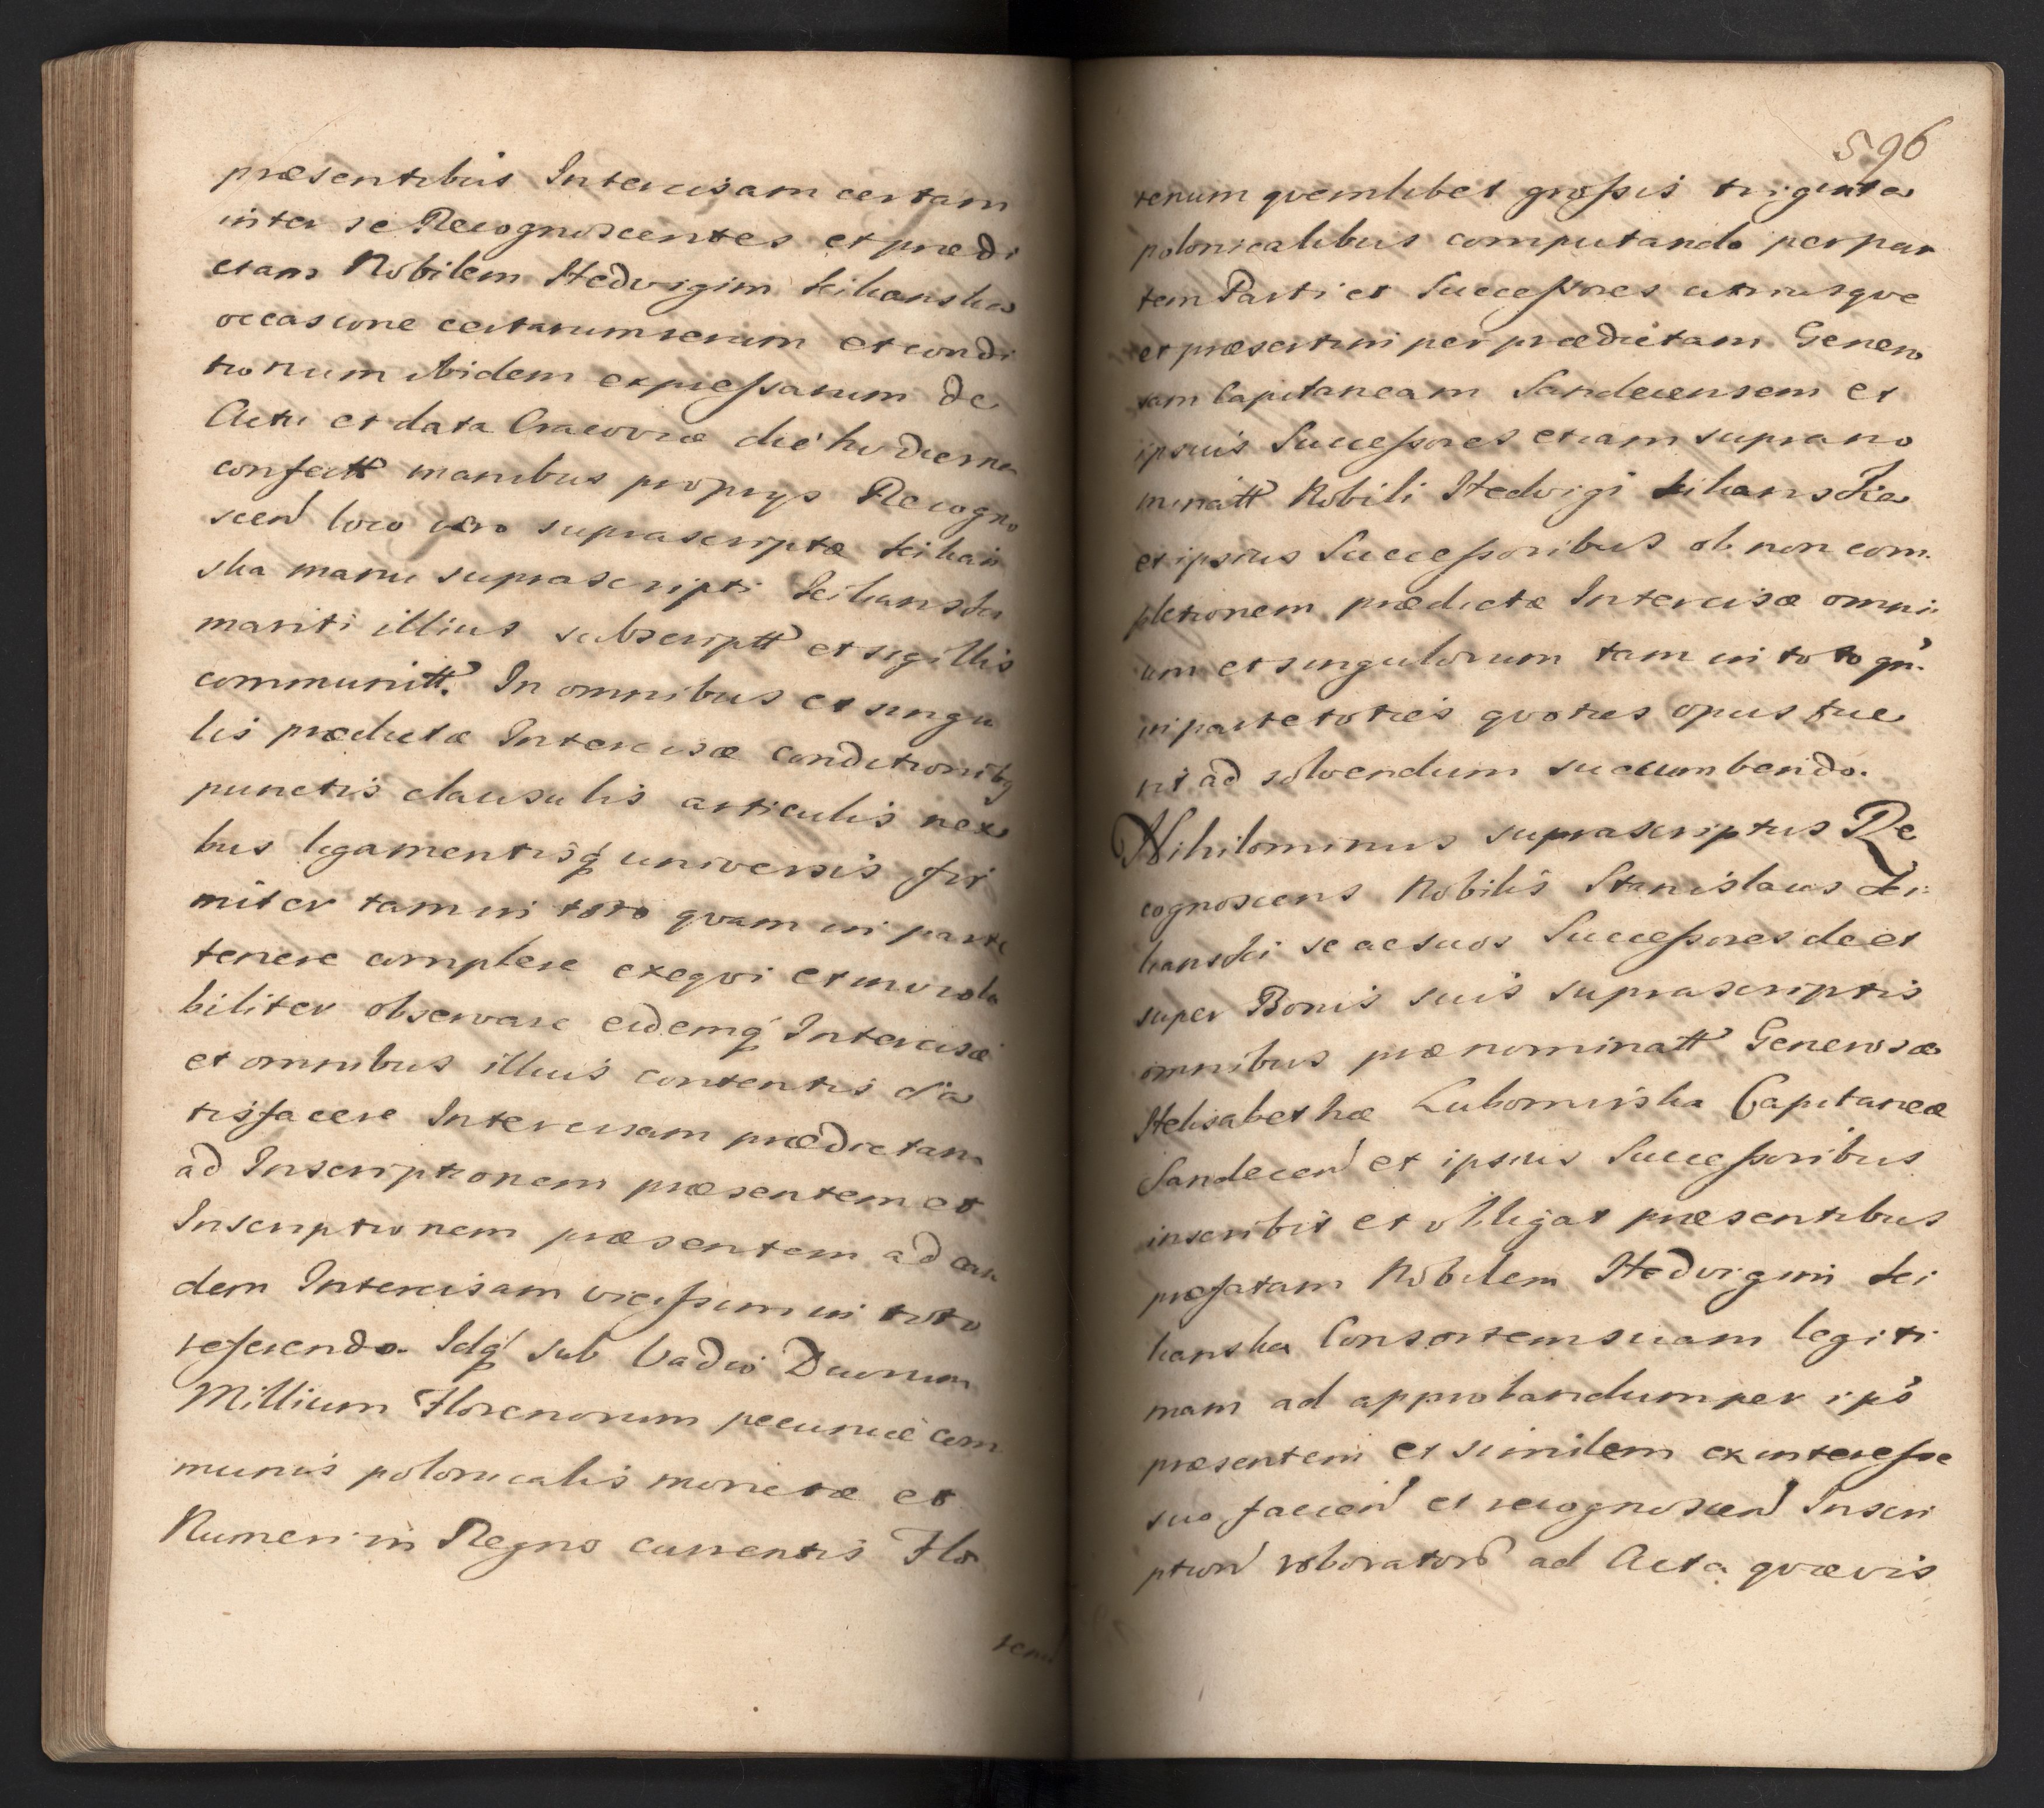 præsentibus Intercisam certam
inter se Recognoscentes et prædi
ctam Nobilem Hedvigim Lihanska
occasione certarum rerum et condi
tionum ibidem expressarum de
Actu et data Cracoviæ die hodierna
confectt manibus proprys Recogno
scen loco vero suprascriptæ Lihan
ska manu suprascripti Lihanski
mariti illius subscriptt et sigillis
communitt. In omnibus et singu
lis prædictæ Intercisæ conditionibq
punctis clausulis articulis nexi
bus ligamentisq universis fir
miter tam in toto quam in parte
tenere complere exeqvi et inviola
biliter observare eidemq Intercisæ
et omnibus illius contentis sa
tisfacere Intercisam prædictam
ad Inscriptionem præsentem et
Inscriptionem præsentem ad ean
dem Intercisam vicissim in toto
referendo. Idq sub Vadio Duorum
Millium Florenorum pecuniæ com
munis polonicalis monetæ et
Numeri in Regno currentis Flo
renu
596
renum qvemlibet grossis triginta
polonicalibus computando per par
tem Parti et Successores utriusqve
et præsertim per prædictam Genero
sam Capitaneam Sandecensem et
ipsius Successores etiam suprano
minatt Nobili Hedvigi Lihanska
et ipsius Successoribus ob non com
pletionem prædictæ Intercisæ omni
um et singulorum tam in toto qm
in parte toties qvoties opus fue
rit ad solvendum succumbendo.
Nihilominus suprascriptus Re
cognoscens Nobilis Stanislaus Li
hanski se ac suos Successores de et
super Bonis suis suprascriptis
omnibus prænominatt Generosæ
Helisabethæ Lubomirska Capitaneæ
Sandecen et ipsius Successoribus
inscribit et obligat præsentibus
præfatam Nobilem Hedvigim Li
hanska Consortem suam legiti
mam ad approbandum per ips
præsentem et similem ex interesse
suo facien et recognoscen Inscri
ption roborator ad Acta qvævis